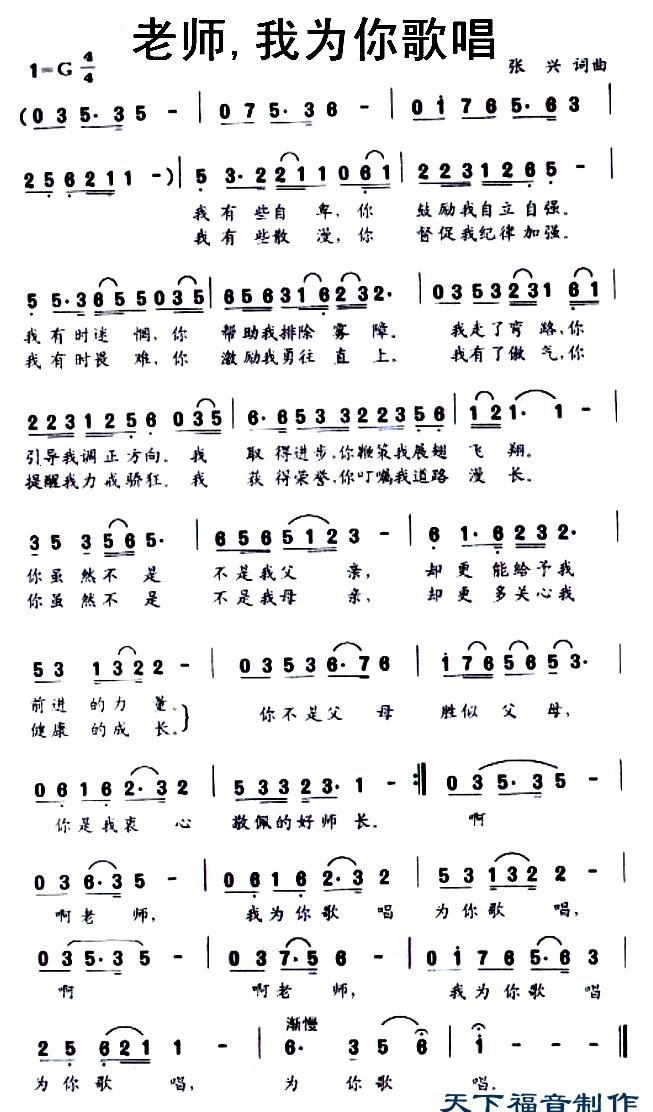 老师,我为你歌唱
1=G 4/4
张 兴 词曲
(0 3 5· 3 5 - | 0 7 5· 3 6 - | 0 1 7 6 5· 6 3
2 5 6 2 1 1 - ) | 5 3· 2 2 1 1 0 6 1 | 2 2 3 1 2 6 5 -
我有些自卑,你 鼓励我自立自强。
我有些散漫,你 督促我纪律加强。
5 5· 3 6 5 5 0 3 5 | 6 5 6 3 1 6 2 3 2· | 0 3 5 3 2 3 1 6 1
我有时迷惘,你 帮助我排除雾障。 我走了弯路,你
我有时畏难,你 激励我勇往直上。 我有了傲气,你
2 2 3 1 2 5 6 0 3 5 | 6· 6 5 3 3 2 2 3 5 6 | 1 2 1· 1 -
引导我调正方向。我 取得进步,你鞭策我展翅飞翔。
提醒我力戒骄狂。我 获得荣誉,你叮嘱我道路漫长。
3 5 3 5 6 5· | 6 5 6 5 1 2 3 - | 6 1· 6 2 3 2·
你虽然不是 不是我父亲, 却更能给予我
你虽然不是 不是我母亲, 却更多关心我
5 3 1 3 2 2 - | 0 3 5 3 6· 7 6 | 1 7 6 5 6 5 3·
前进的力量。 你不是父母 胜似父母,
健康的成长。}
0 6 1 6 2· 3 2 | 5 3 3 2 3· 1 - :| 0 3 5· 3 5 -
你是我衷心 敬佩的好师长。 啊
0 3 6· 3 5 - | 0 6 1 6 2· 3 2 | 5 3 3 1 3 2 2 -
啊老师, 我为你歌唱 为你歌唱,
0 3 5· 3 5 - | 0 3 7· 5 6 - | 0 1 7 6 5· 6 3
啊 啊老师, 我为你歌唱
渐慢
2 5 6 2 1 1 - | 6· 3 5 6 | 1 - - - ||
为你歌唱, 为你歌唱。
天下福音制作